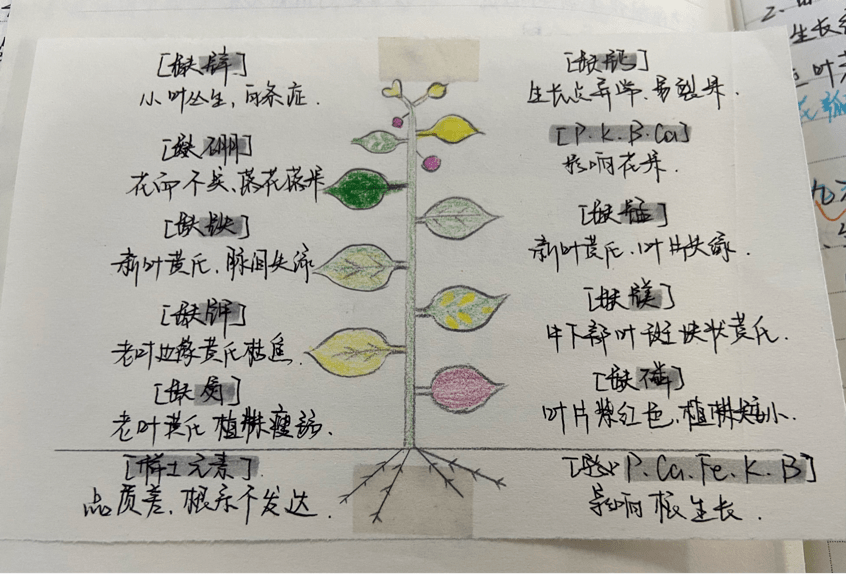 [缺锌]
小叶丛生，白条症.
[缺硼]
花而不实、落花落果
[缺铁]
新叶黄化，脉间失绿
[缺钾]
老叶边缘黄化枯焦
[缺氮]
老叶黄化 植株瘦弱.
[稀土元素]
品质差，根系不发达.
[缺钙]
生长点异常、易裂果.
[P.K.B.Ca]
影响花果.
[缺锰]
新叶黄化，叶片失绿.
[缺镁]
中下部叶斑块状黄化.
[缺磷]
叶片紫红色，植株矮小.
P.Ca.Fe.K.B]
影响根生长.
2、
生长
叶